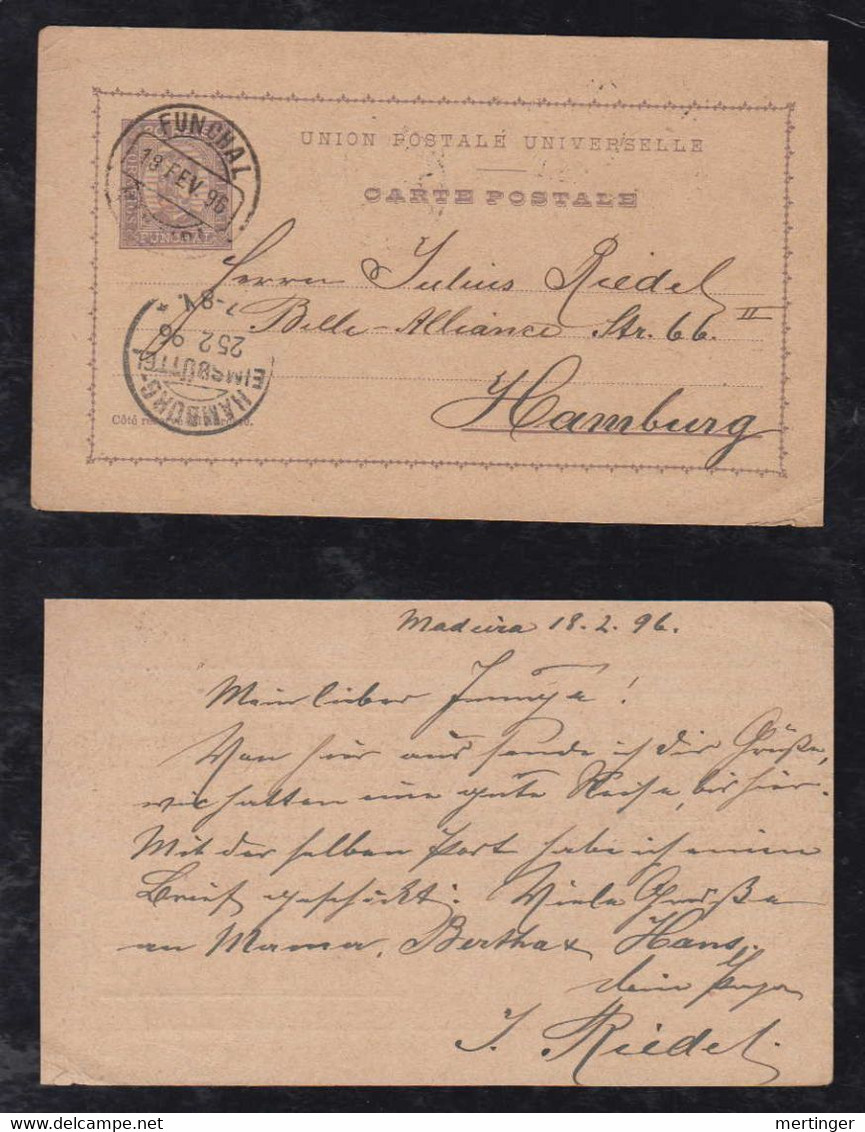 FUNCHAL
19 FEV. 96
FUNCHAL
UNION POSTALE UNIVERSELLE
CARTE POSTALE
Herrn Julius Riedel
Belle-Alliance Str. 66. II
Hamburg
HAMBURG-
EIMSBÜTTEL
25.2.96
7-8V. *
Côté
Madeira 18.2.96.
Mein lieber !
Von hier aus sende ich dir Grüße,
wir hatten eine gute Reise, bis hier.
Mit der selben Post habe ich einen
Brief geschickt. Viele Grüße
an Mama, Bertha & Hans.
dein Papa
J. Riedel.
mertinger